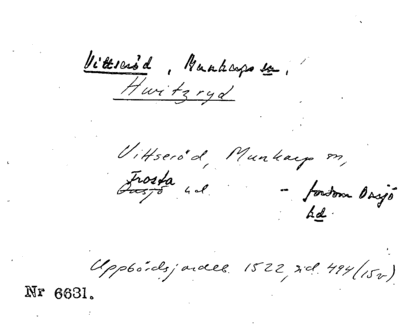 Vittseröd, Munkarps sn.
Hwitzryd
Vittseröd, Munkarp sn,
Frosta
Onsjö hd - fordom Onsjö
hd.
Uppbördsjordeb. 1522, sid. 494 (15v)
Nr 6631.